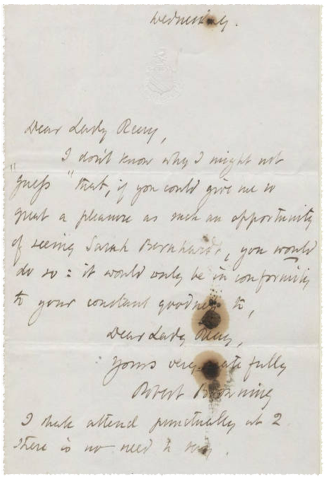 Wednesday.
Dear Lady Reay,
I don't know why I might not
"guess" that, if you could give me so
great a pleasure as such an opportunity
of seeing Sarah Bernhardt, you would
do so: it would only be in conformity
to your constant goodness to,
Dear Lady Reay,
Yours very gratefully
Robert Browning
I shall attend punctually at 2.
there is no need to say.